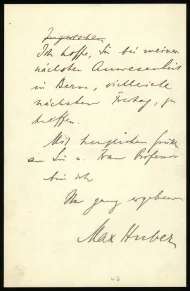 Ich hoffe, Sie bei meiner
nächsten Anwesenheit
in Bern, vielleicht
nächsten Freitag, zu
treffen.
Mit herzlichen Grüßen
an Sie u. Frau Professor
bin ich
Ihr ganz ergebener
Max Huber